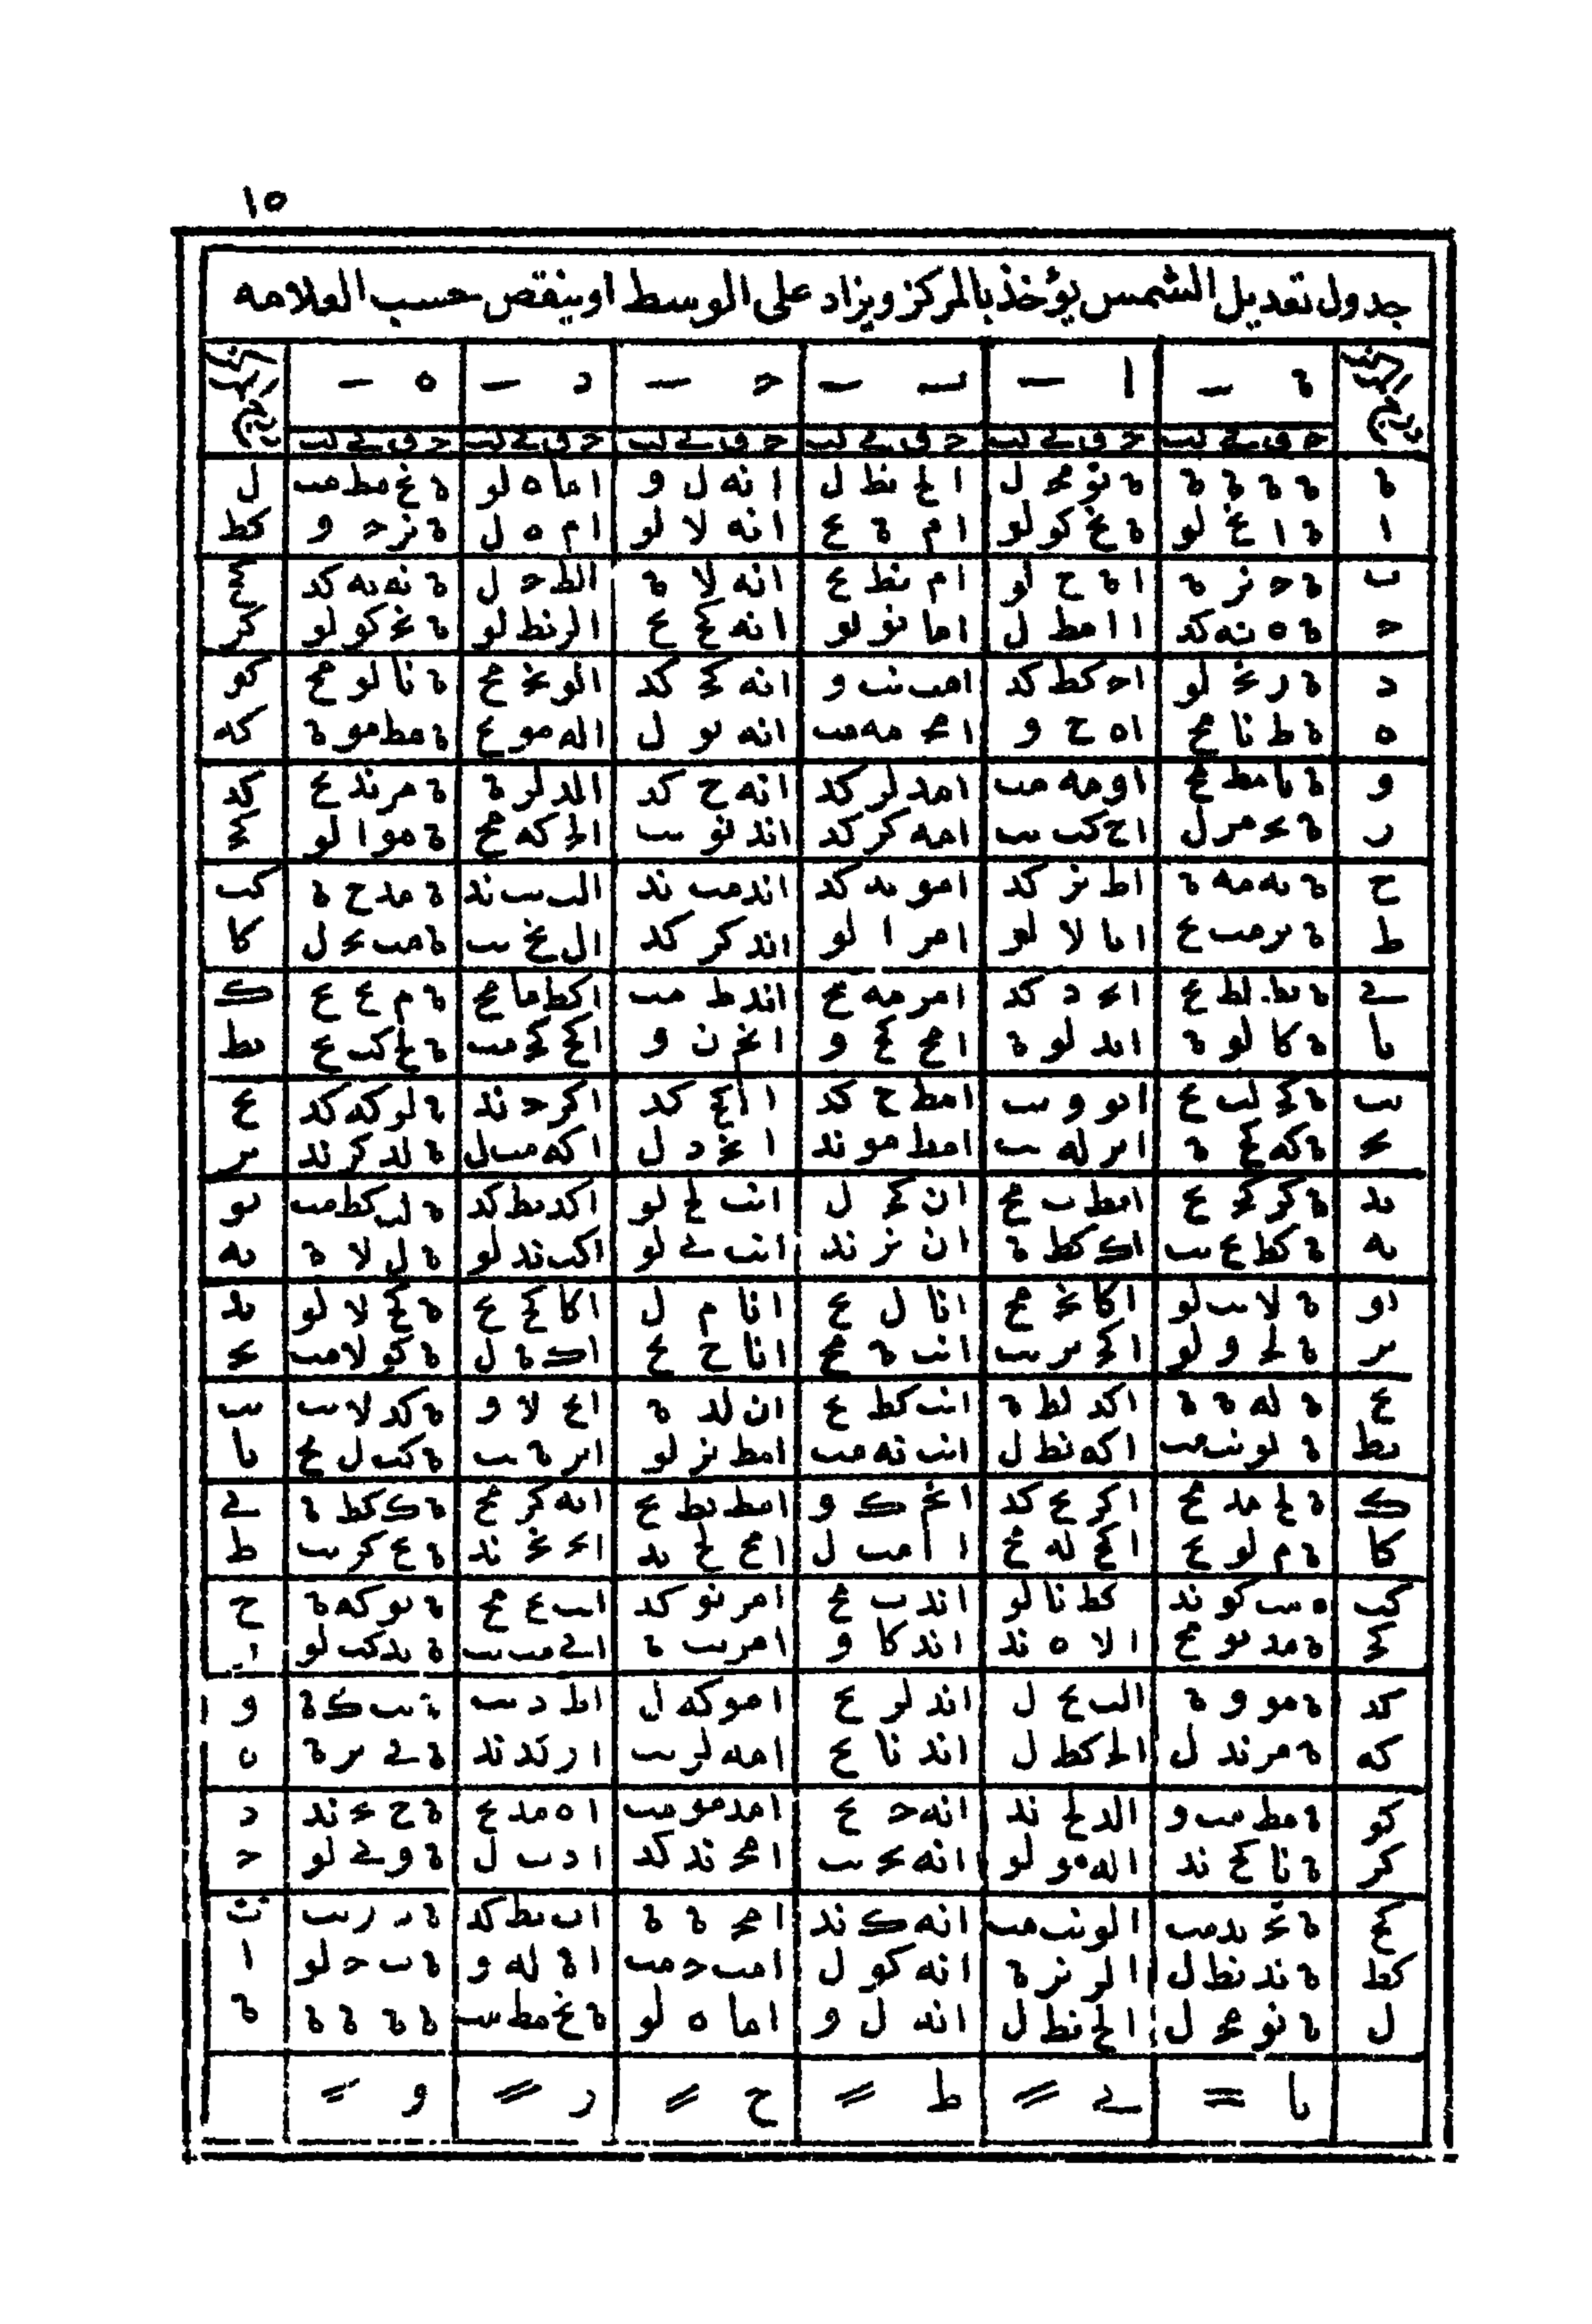 ١٥
جدول تعديل الشمس يؤخذ بالمركز ويزاد على الوسط او ينقص حسب العلامه
ة — ا — ب — ح — د — ه —
ة ة ة ة ة ة نو مح ل ا لح نط ل ا نه ل و ا ما ه لو ة نح مط مب ل
ا ة ا نح لو ة نح كو لو ا م ة ع ا نه لا لو ا م ه ل ة نز ح و كط
ب ة ح نز ة ا ة ح لو ا م نط ع ا نه لا ة ا لط ح ل ة نه يه كد كح
ح ة ه نه كد ا ا مط ل ا ما نو لو ا نه كح ع ا لز نط لو ة نح كو لو كز
د ة ز نح لو ا ح كط كد ا مب نب و ا نه كح كد ا لو نح مح ة نا لو مح كو
ه ة ط نا مح ا ه ح و ا مح مه مب ا نه يو ل ا له مو ع ة مط مو ة كه
و ة يا مط مح ا و مه مب ا مد لز كد ا نه ح كد ا لد لز ة ة مز ند ع كد
ز ة يح مز ل ا ح كب يب ا مه كز كد ا ند نو يب ا لح كه مح ة مو ا لو كح
ح ة يه مه ة ا ط نز كد ا مو يد كد ا ند مب ند ا لب يب ند ة مد ح ة كب
ط ة يز مب ع ا يا لا لو ا مز ا لو ا ند كز كد ا ل نح يب ة مب يح ل كا
ي ة يط لط ع ا يح د كد ا مز مه مح ا ند ط مب ا كط ما مح ة م ع ع ك
يا ة كا لو ة ا يد لو ة ا مح كح و ا نح ن و ا كح كح مب ة لح كب ع يط
يب ة كح لب ع ا يو و يب ا مط ح كد ا نح كد ا كز ح ند ة لو كه كد يح
يح ة كه كح ة ا يز له يب ا مط مو ند ا نح د ل ا كه مب ل ة لد كز ند يز
يد ة كز كح ع ا يط ب مح ا ن كح ل ا نب لح لو ا كد يط كد ة لب كط مب يو
يه ة كط ع يب ا ك كط ة ا ن نز ند ا نب ي لو ا كب ند لو ة ل لا ة يه
يو ة لا يب لو ا كا نح مح ا نا ل ع ا نا م ل ا كا كح ع ة كح لا لو يد
يز ة لح و لو ا كح يز يب ا نب ة مح ا نا ح مح ا ك ة ل ة كو لا مب يح
يح ة له ة ة ا كد لط ة ا نب كط ع ا ن لد ة ا يح لا و ة كد لا يب يب
يط ة لو نب مب ا كه نط ل ا نب نه مب ا مط نز لو ا يز ة يب ة كب ل مح يا
ك ة لح مد مح ا كز ع كد ا نح ك و ا مط يط ع ا يه كز مح ة ك كط ة ي
كا ة م لو ع ا كح له مح ا مب ل ا مح لح يد ا يح نح ند ة ع كز يب ط
كب ه يب كو ند كط نا لو ا ند ب مح ا مز نو كد ا يب ع مح ة يو كه ة ح
كح ة مد يو مح ا لا ه ند ا ند كا و ا مز يب ة ا ي مب يب ة يد كب لو ز
كد ة مو و ة ا لب ع ل ا ند لز ع ا مو كه ل ا ط د يب ة يب ك ة و
كه ة مز ند ل ا لح كط ل ا ند نا ع ا مه لز يب ا ز كد ند ة ي يز ة ه
كو ة مط مب و ا لد لح ند ا نه ح ع ا مد مو مب ا ه مد ع ة ح يح ند د
كز ة نا كح ند ا له مو لو ا نه يح يب ا مح ند كد ا د ب ل ة و ي لو ح
كح ة نح يد مب ا لو نب مب ا نه ك ند ا مح ة ة ا ب يط كد ة د ز يب ب
كط ة ند نط ل ا لز نز ة ا نه كو ل ا مب ح مب ا ة له و ة ب ح لو ا
ل ة نو مح ل ا لح نط ل ا نه ل و ا ما ه لو ة نح مط مب ة ة ة ة ة
يا = ي = ط = ح = ز = و =